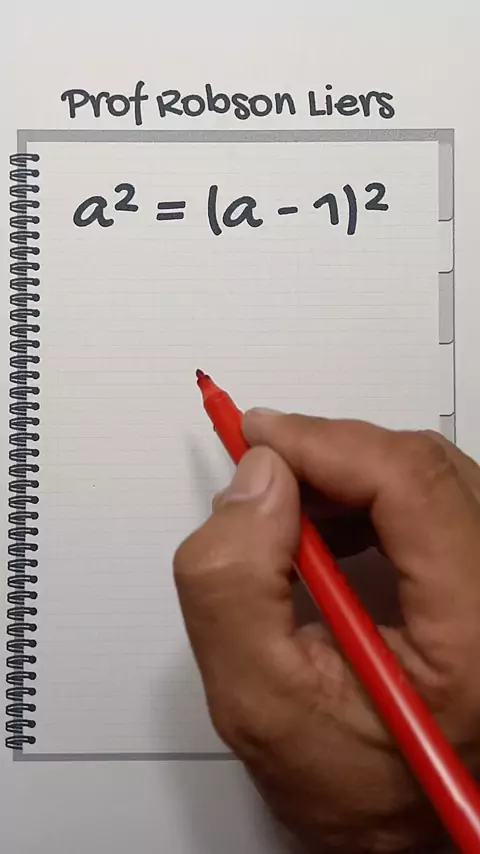 Prof Robson Liers
a² = (a - 1)²